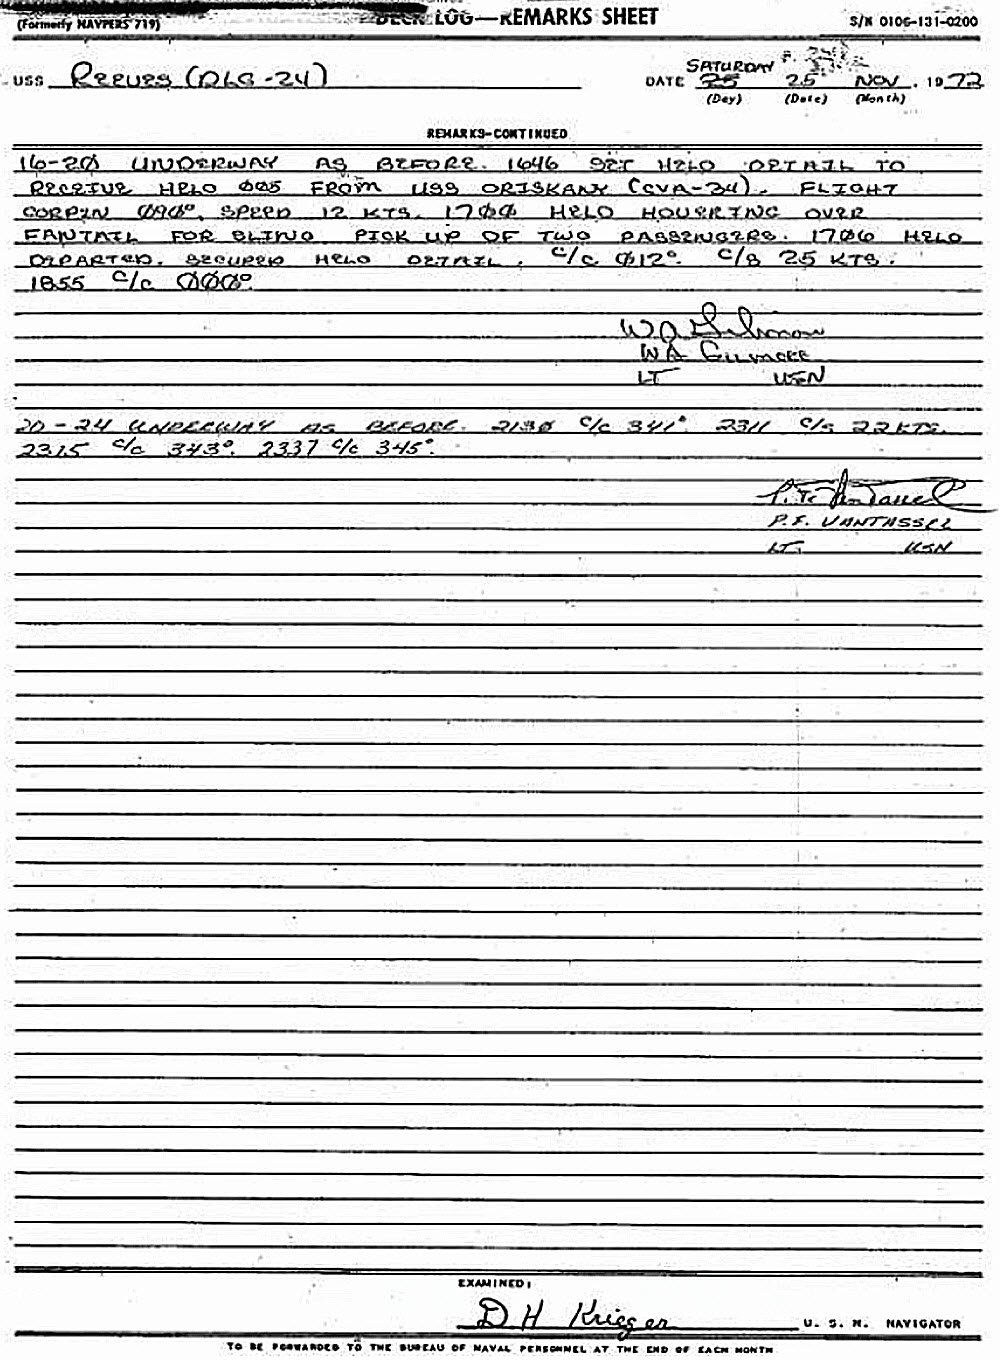 (Formerly NAVPERS 719) DECK LOG—REMARKS SHEET S/N 0106-131-0200
SATURDAY
USS REEVES (DLG-24) DATE 25 25 NOV, 1972
(Day) (Date) (Month)
REMARKS-CONTINUED
16-2Ø UNDERWAY AS BEFORE. 1646 SET HELO DETAIL TO
RECEIVE HELO ØØ5 FROM USS ORISKANY (CVA-34). FLIGHT
CORPEN Ø9Ø°, SPEED 12 KTS. 17ØØ HELO HOVERING OVER
FANTAIL FOR SLING PICK UP OF TWO PASSENGERS. 17Ø6 HELO
DEPARTED. SECURED HELO DETAIL. C/C Ø12°. C/S 25 KTS.
1855 C/C ØØØ°
W A Gilmore
W A GILMORE
LT USN
20-24 UNDERWAY AS BEFORE. 213Ø C/C 341°. 2311 C/S 22 KTS.
2315 C/C 343°. 2337 C/C 345°.
P. F. VanTassel
P.F. VANTASSEL
LT. USN
EXAMINED:
D H Krieger U. S. N. NAVIGATOR
TO BE FORWARDED TO THE BUREAU OF NAVAL PERSONNEL AT THE END OF EACH MONTH